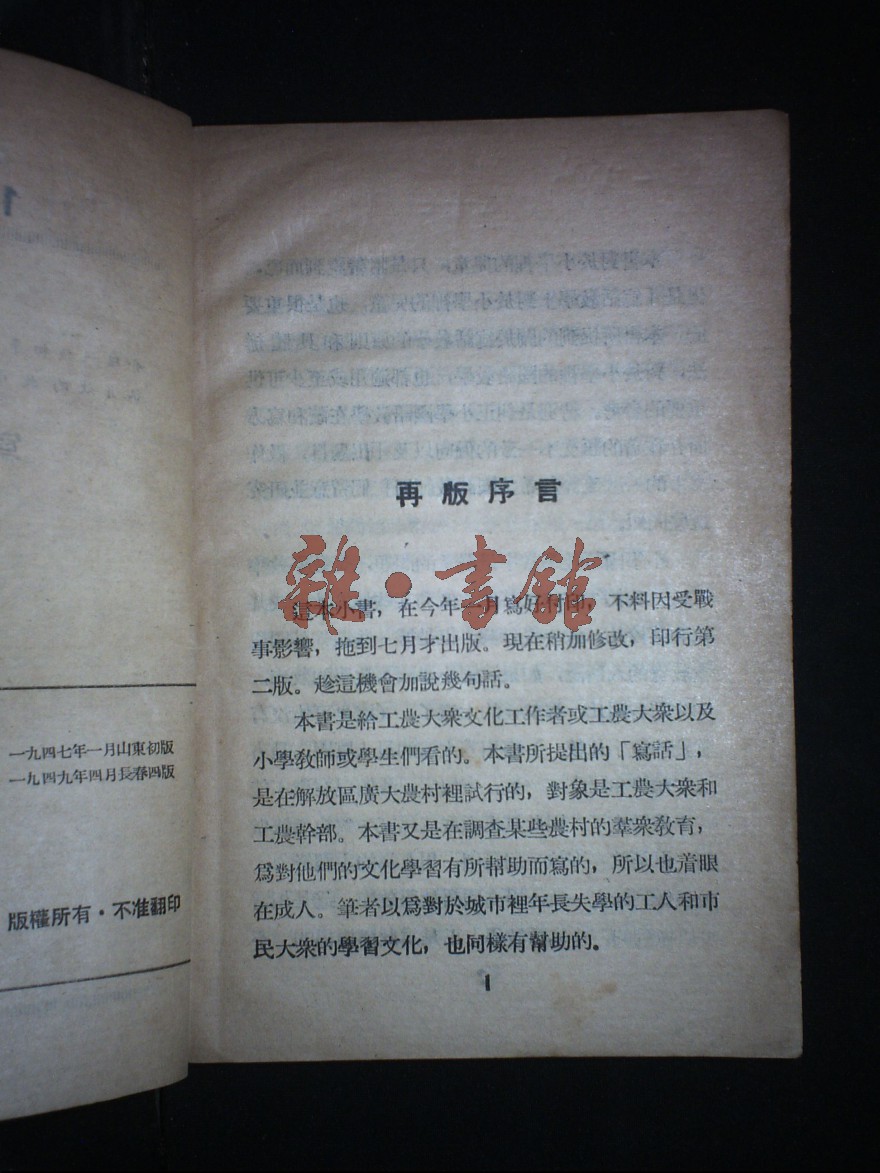 再版序言
這本小書，在今年一月寫好付印，不料因受戰
事影響，拖到七月才出版。現在稍加修改，印行第
二版。趁這機會加說幾句話。
本書是給工農大衆文化工作者或工農大衆以及
小學教師或學生們看的。本書所提出的「寫話」，
是在解放區廣大農村裡試行的，對象是工農大衆和
工農幹部。本書又是在調查某些農村的羣衆教育，
爲對他們的文化學習有所幫助而寫的，所以也着眼
在成人。筆者以爲對於城市裡年長失學的工人和市
民大衆的學習文化，也同樣有幫助的。
1
一九四七年一月山東初版
一九四九年四月長春四版
版權所有·不准翻印
雜·書館